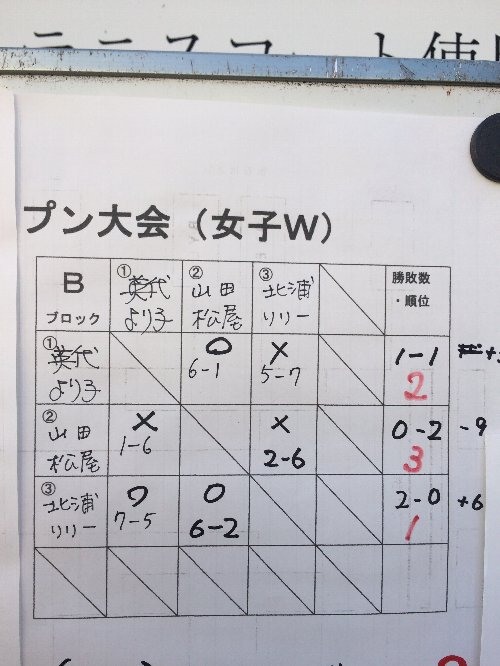 テニスコート使用
プン大会（女子W）
B
ブロック
①
英代
より子
②
山田
松屋
③
北浦
リリー
勝敗数
・順位
①
英代
より子
○
6-1
×
5-7
1-1
2
②
山田
松屋
×
1-6
×
2-6
0-2
3
-9
③
北浦
リリー
○
7-5
○
6-2
2-0
1
+6